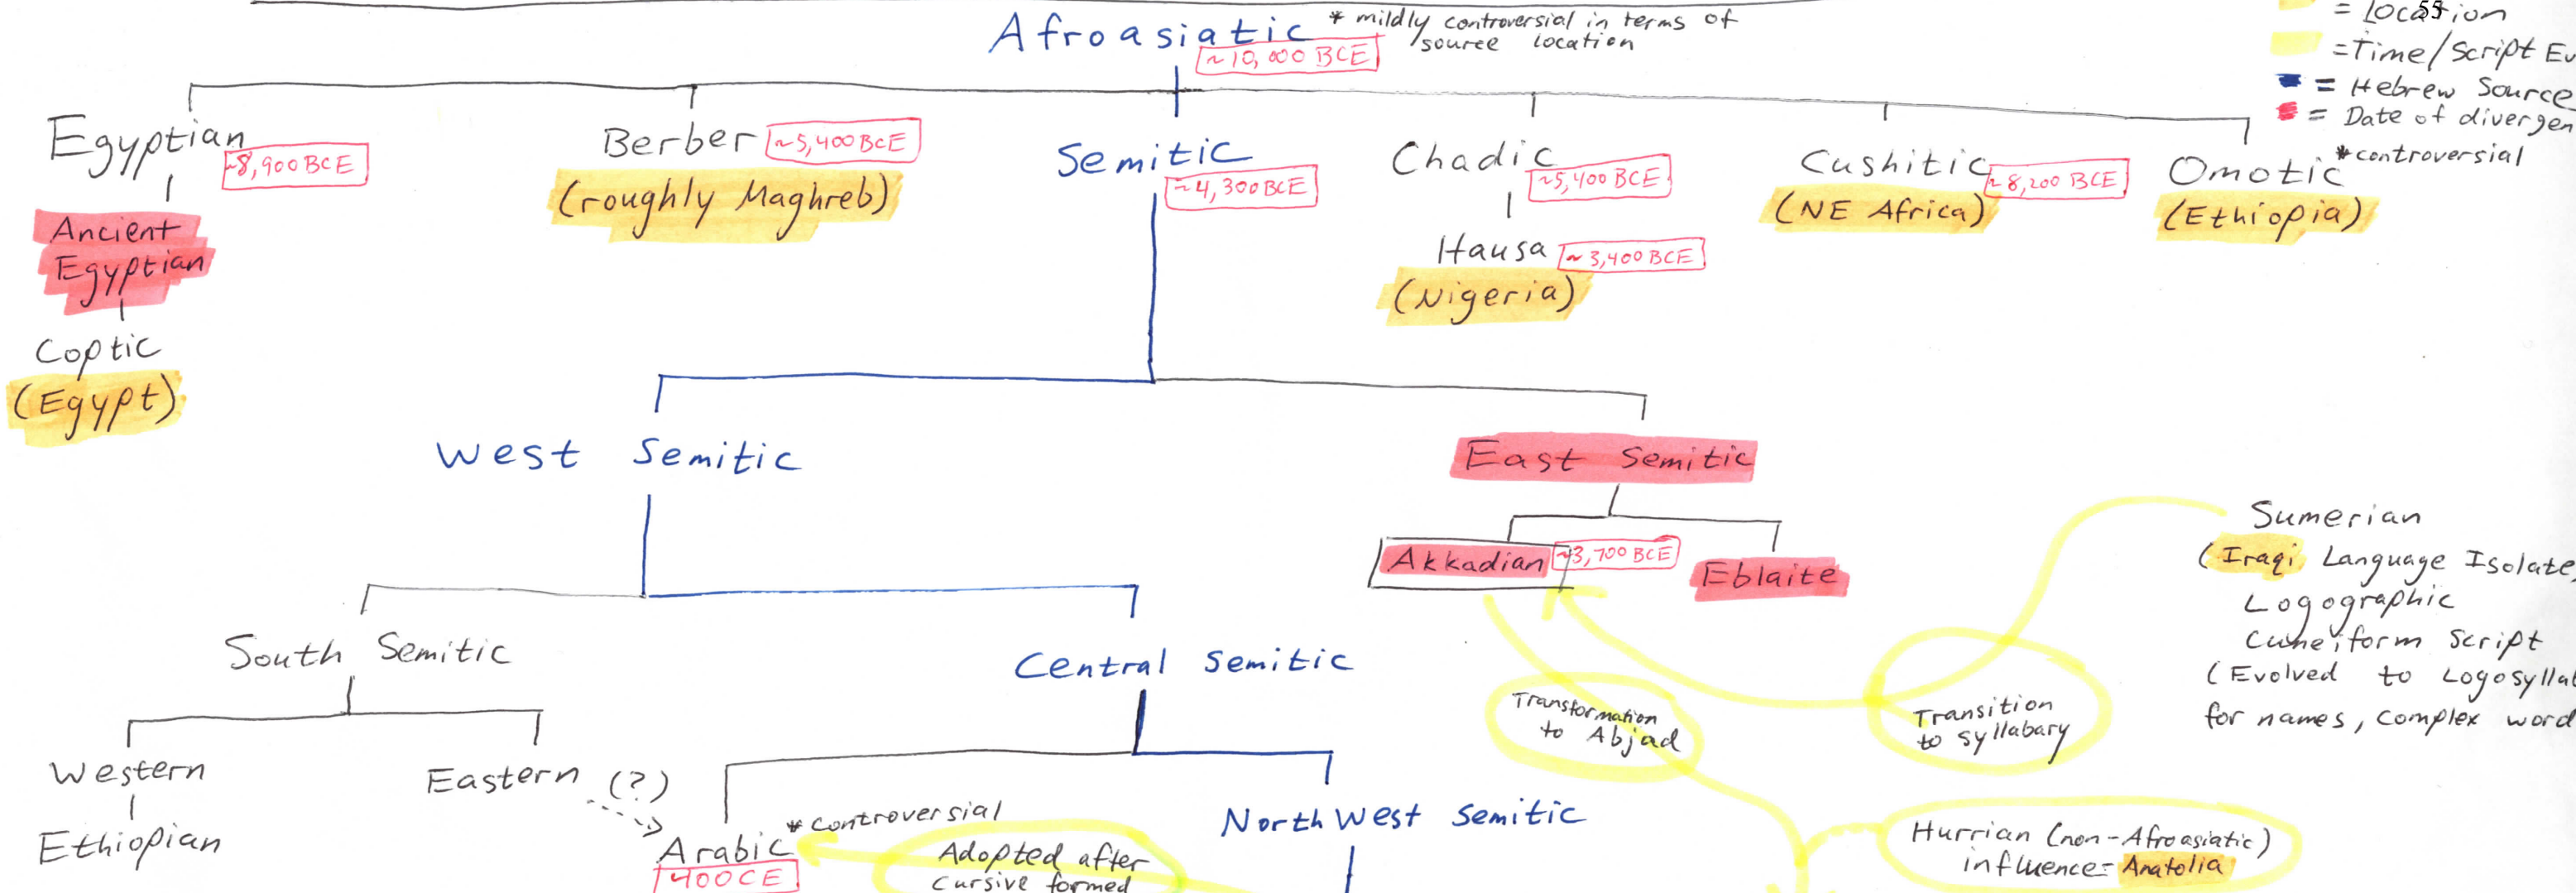 Afroasiatic
* mildly controversial in terms of
source location
~10,000 BCE
= Time/Script
= Hebrew Source
= Date of
Egyptian
~8,900 BCE
Ancient
Egyptian
Coptic
(Egypt)
Berber
~5,400 BCE
(roughly Maghreb)
Semitic
~4,300 BCE
Chadic
~5,400 BCE
Hausa
~3,400 BCE
(Nigeria)
Cushitic
~8,200 BCE
(NE Africa)
Omotic
*controversial
(Ethiopia)
West Semitic
East Semitic
Akkadian
~3,700 BCE
Eblaite
Sumerian
(Iraqi Language Isolate,
Logographic
Cuneiform Script
(Evolved to
for names, complex
South Semitic
Central Semitic
Transformation
to Abjad
Transition
to syllabary
Western
Ethiopian
Eastern (?)
Arabic
*controversial
400 CE
Adopted after
cursive formed
North West Semitic
Hurrian (non-Afroasiatic)
influence= Anatolia